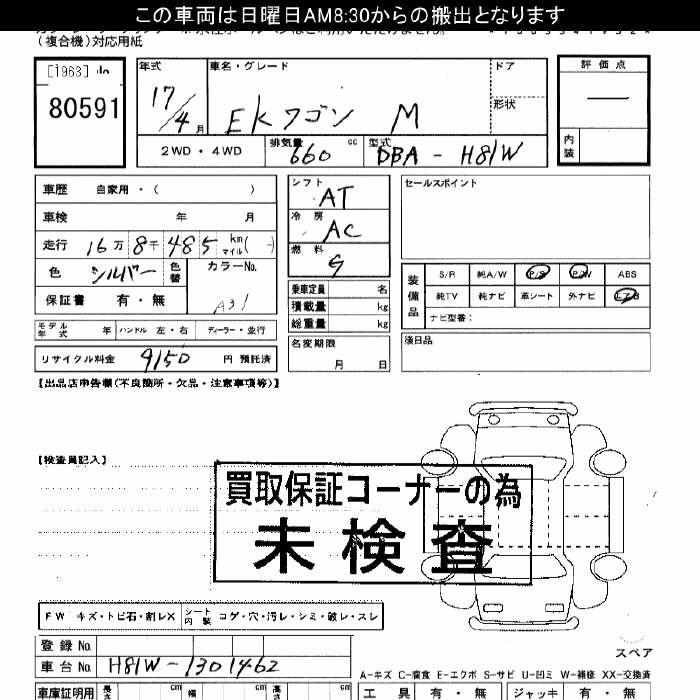 この車両は日曜日AM8:30からの搬出となります
(複合機)対応用紙
[1963]
80591
年式
17/4 月
車名・グレード
EKワゴン M
ドア
形状
評価点
—
内装
2WD・4WD
排気量 660 cc
型式 DBA - H81W
車歴 自家用・( )
車検 年 月
走行 16万8千485 km マイル( - )
色 シルバー
色替
カラーNo. A31
保証書 有・無
モデル年式 年
ハンドル 左・右
ディーラー・並行
リサイクル料金 9150 円 預託済
シフト AT
冷房 AC
燃料 G
乗車定員 名
積載量 kg
総重量 kg
名変期限 月 日
セールスポイント
装備品
S/R 純A/W P/S P/W ABS
純TV 純ナビ 革シート 外ナビ エアB
ナビ型番:
後日品
【出品店申告欄(不良箇所・欠品・注意事項等)】
【検査員記入】
買取保証コーナーの為
未検査
FW キズ・トビ石・割レX
シート内装 コゲ・穴・汚レ・シミ・破レ・スレ
登録No.
車台No. H81W-1301462
スペア
A-キズ C-腐食 E-エクボ S-サビ U-凹ミ W-補修 XX-交換済
車庫証明用 長さ cm 幅 cm 高さ cm
工具 有・無 ジャッキ 有・無